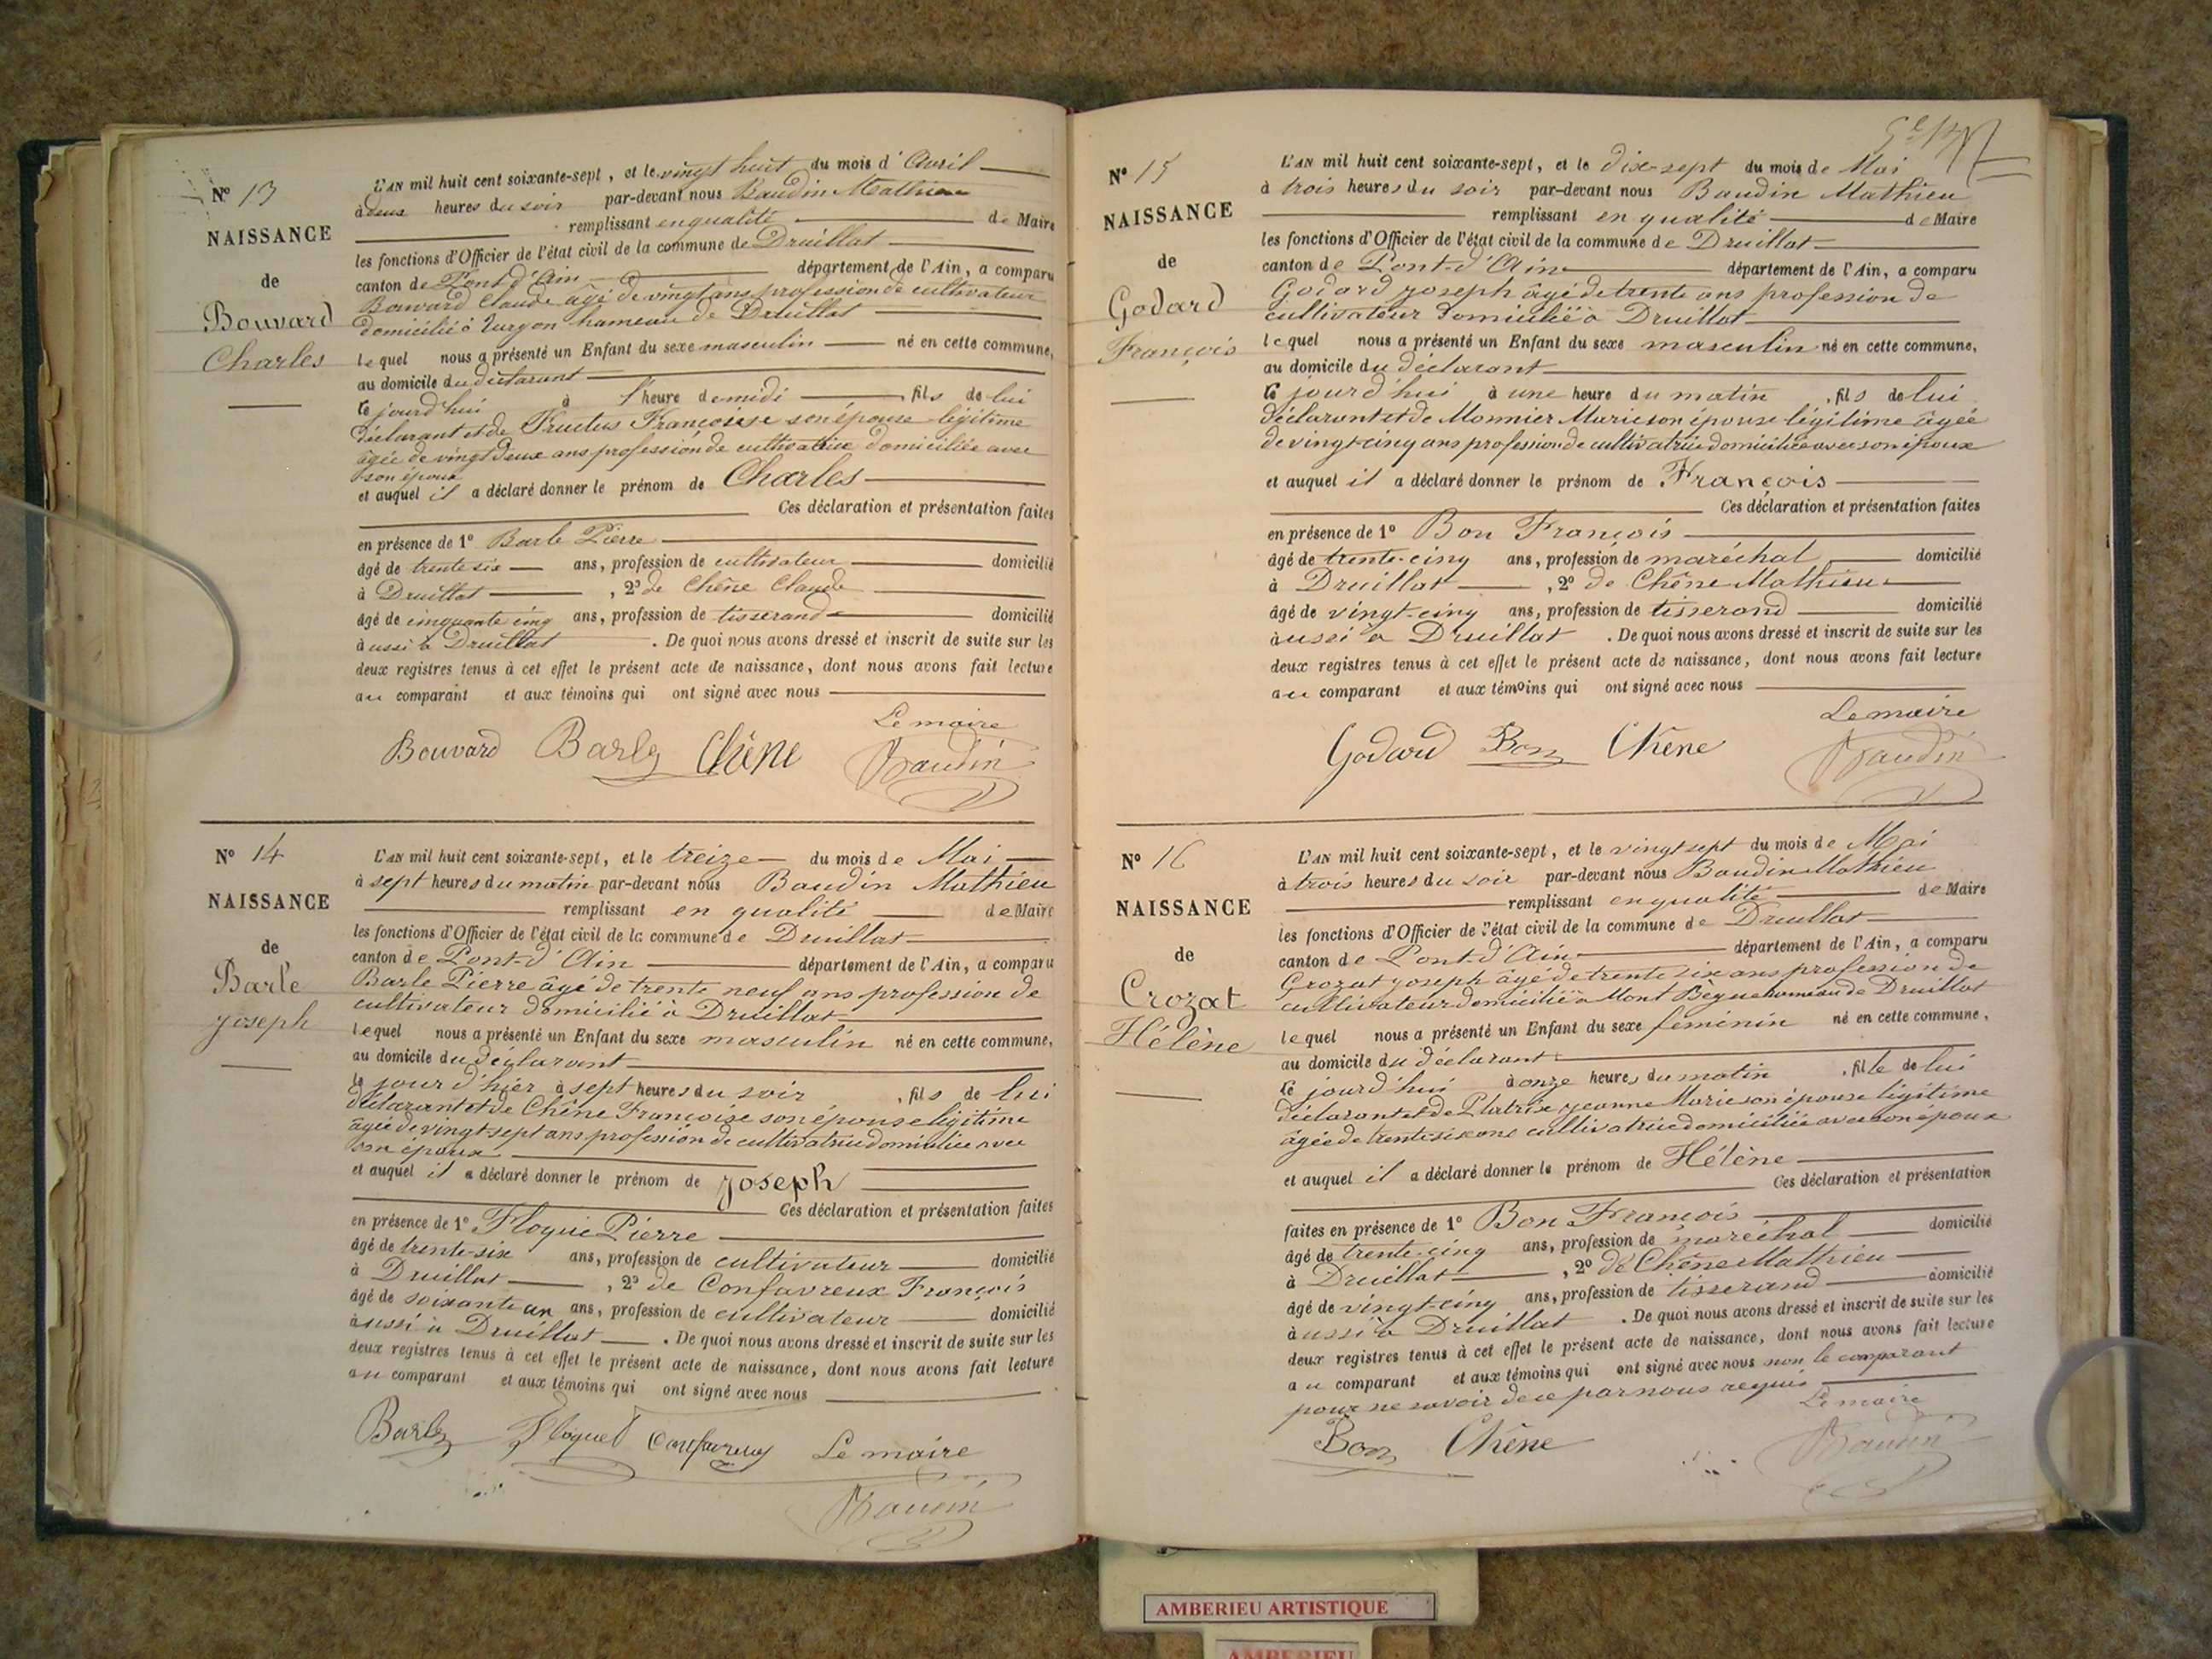 N° 13
NAISSANCE
de
Bouvard
Charles
L'AN mil huit cent soixante-sept, et le vingt huit du mois d'Avril
à deux heures du soir par-devant nous Baudin Mathieu
remplissant en qualité de Maire
les fonctions d'Officier de l'état civil de la commune de Druillat
canton de Pont d'Ain département de l'Ain, a comparu
Bouvard Claude âgé de vingt ans profession de cultivateur
domicilié à Turgon hameau de Druillat
lequel nous a présenté un Enfant du sexe masculin né en cette commune,
au domicile du déclarant
ce jourd'hui à l'heure de midi fils de lui
déclarant et de Fructus Françoise son épouse légitime
âgée de vingt deux ans profession de cultivatrice domiciliée avec
son époux
et auquel il a déclaré donner le prénom de Charles
Ces déclaration et présentation faites
en présence de 1° Barle Pierre
âgé de trente six ans, profession de cultivateur domicilié
à Druillat, 2° de Chêne Claude
âgé de cinquante cinq ans, profession de tisserand domicilié
aussi à Druillat. De quoi nous avons dressé et inscrit de suite sur les
deux registres tenus à cet effet le présent acte de naissance, dont nous avons fait lecture
au comparant et aux témoins qui ont signé avec nous
Le maire
Bouvard Barle Chêne Baudin
N° 14
NAISSANCE
de
Barle
Joseph
L'AN mil huit cent soixante-sept, et le treize du mois de Mai
à sept heures du matin par-devant nous Baudin Mathieu
remplissant en qualité de Maire
les fonctions d'Officier de l'état civil de la commune de Druillat
canton de Pont-d'Ain département de l'Ain, a comparu
Barle Pierre âgé de trente neuf ans profession de
cultivateur domicilié à Druillat
lequel nous a présenté un Enfant du sexe masculin né en cette commune,
au domicile du déclarant
le jour d'hier à sept heures du soir, fils de lui
déclarant et de Chêne Françoise son épouse légitime
âgée de vingt-sept ans profession de cultivatrice domiciliée avec
son époux
et auquel il a déclaré donner le prénom de Joseph
Ces déclaration et présentation faites
en présence de 1° Floquet Pierre
âgé de trente-six ans, profession de cultivateur domicilié
à Druillat, 2° de Confavreux François
âgé de soixante un ans, profession de cultivateur domicilié
aussi à Druillat. De quoi nous avons dressé et inscrit de suite sur les
deux registres tenus à cet effet le présent acte de naissance, dont nous avons fait lecture
au comparant et aux témoins qui ont signé avec nous
Barle Floquet Confavreux Le maire
Baudin
N° 15
NAISSANCE
de
Godard
François
L'AN mil huit cent soixante-sept, et le dix-sept du mois de Mai
à trois heures du soir par-devant nous Baudin Mathieu
remplissant en qualité de Maire
les fonctions d'Officier de l'état civil de la commune de Druillat
canton de Pont-d'Ain département de l'Ain, a comparu
Godard Joseph âgé de trente ans profession de
cultivateur domicilié à Druillat
lequel nous a présenté un Enfant du sexe masculin né en cette commune,
au domicile du déclarant
ce jourd'hui à une heure du matin, fils de lui
déclarant et de Monnier Marie son épouse légitime âgée
de vingt-cinq ans profession de cultivatrice domiciliée avec son époux
et auquel il a déclaré donner le prénom de François
Ces déclaration et présentation faites
en présence de 1° Bon François
âgé de trente-cinq ans, profession de maréchal domicilié
à Druillat, 2° de Chêne Mathieu
âgé de vingt-cinq ans, profession de tisserand domicilié
aussi à Druillat. De quoi nous avons dressé et inscrit de suite sur les
deux registres tenus à cet effet le présent acte de naissance, dont nous avons fait lecture
au comparant et aux témoins qui ont signé avec nous
Le maire
Godard Bon Chêne Baudin
N° 16
NAISSANCE
de
Crozat
Hélène
L'AN mil huit cent soixante-sept, et le vingt sept du mois de Mai
à trois heures du soir par-devant nous Baudin Mathieu
remplissant en qualité de Maire
les fonctions d'Officier de l'état civil de la commune de Druillat
canton de Pont-d'Ain département de l'Ain, a comparu
Crozat Joseph âgé de trente six ans profession de
cultivateur domicilié à Mont Bègue hameau de Druillat
lequel nous a présenté un Enfant du sexe féminin né en cette commune,
au domicile du déclarant
ce jourd'hui à onze heures du matin, fille de lui
déclarant et de Platrix Jeanne Marie son épouse légitime
âgée de trente six ans cultivatrice domiciliée avec son époux
et auquel il a déclaré donner le prénom de Hélène
Ces déclaration et présentation
faites en présence de 1° Bon François
âgé de trente-cinq ans, profession de maréchal domicilié
à Druillat, 2° de Chêne Mathieu
âgé de vingt-cinq ans, profession de tisserand domicilié
aussi à Druillat. De quoi nous avons dressé et inscrit de suite sur les
deux registres tenus à cet effet le présent acte de naissance, dont nous avons fait lecture
au comparant et aux témoins qui ont signé avec nous non le comparant
pour ne savoir de ce par nous requis
Le maire
Bon Chêne Baudin
AMBERIEU ARTISTIQUE
AMBERIEU